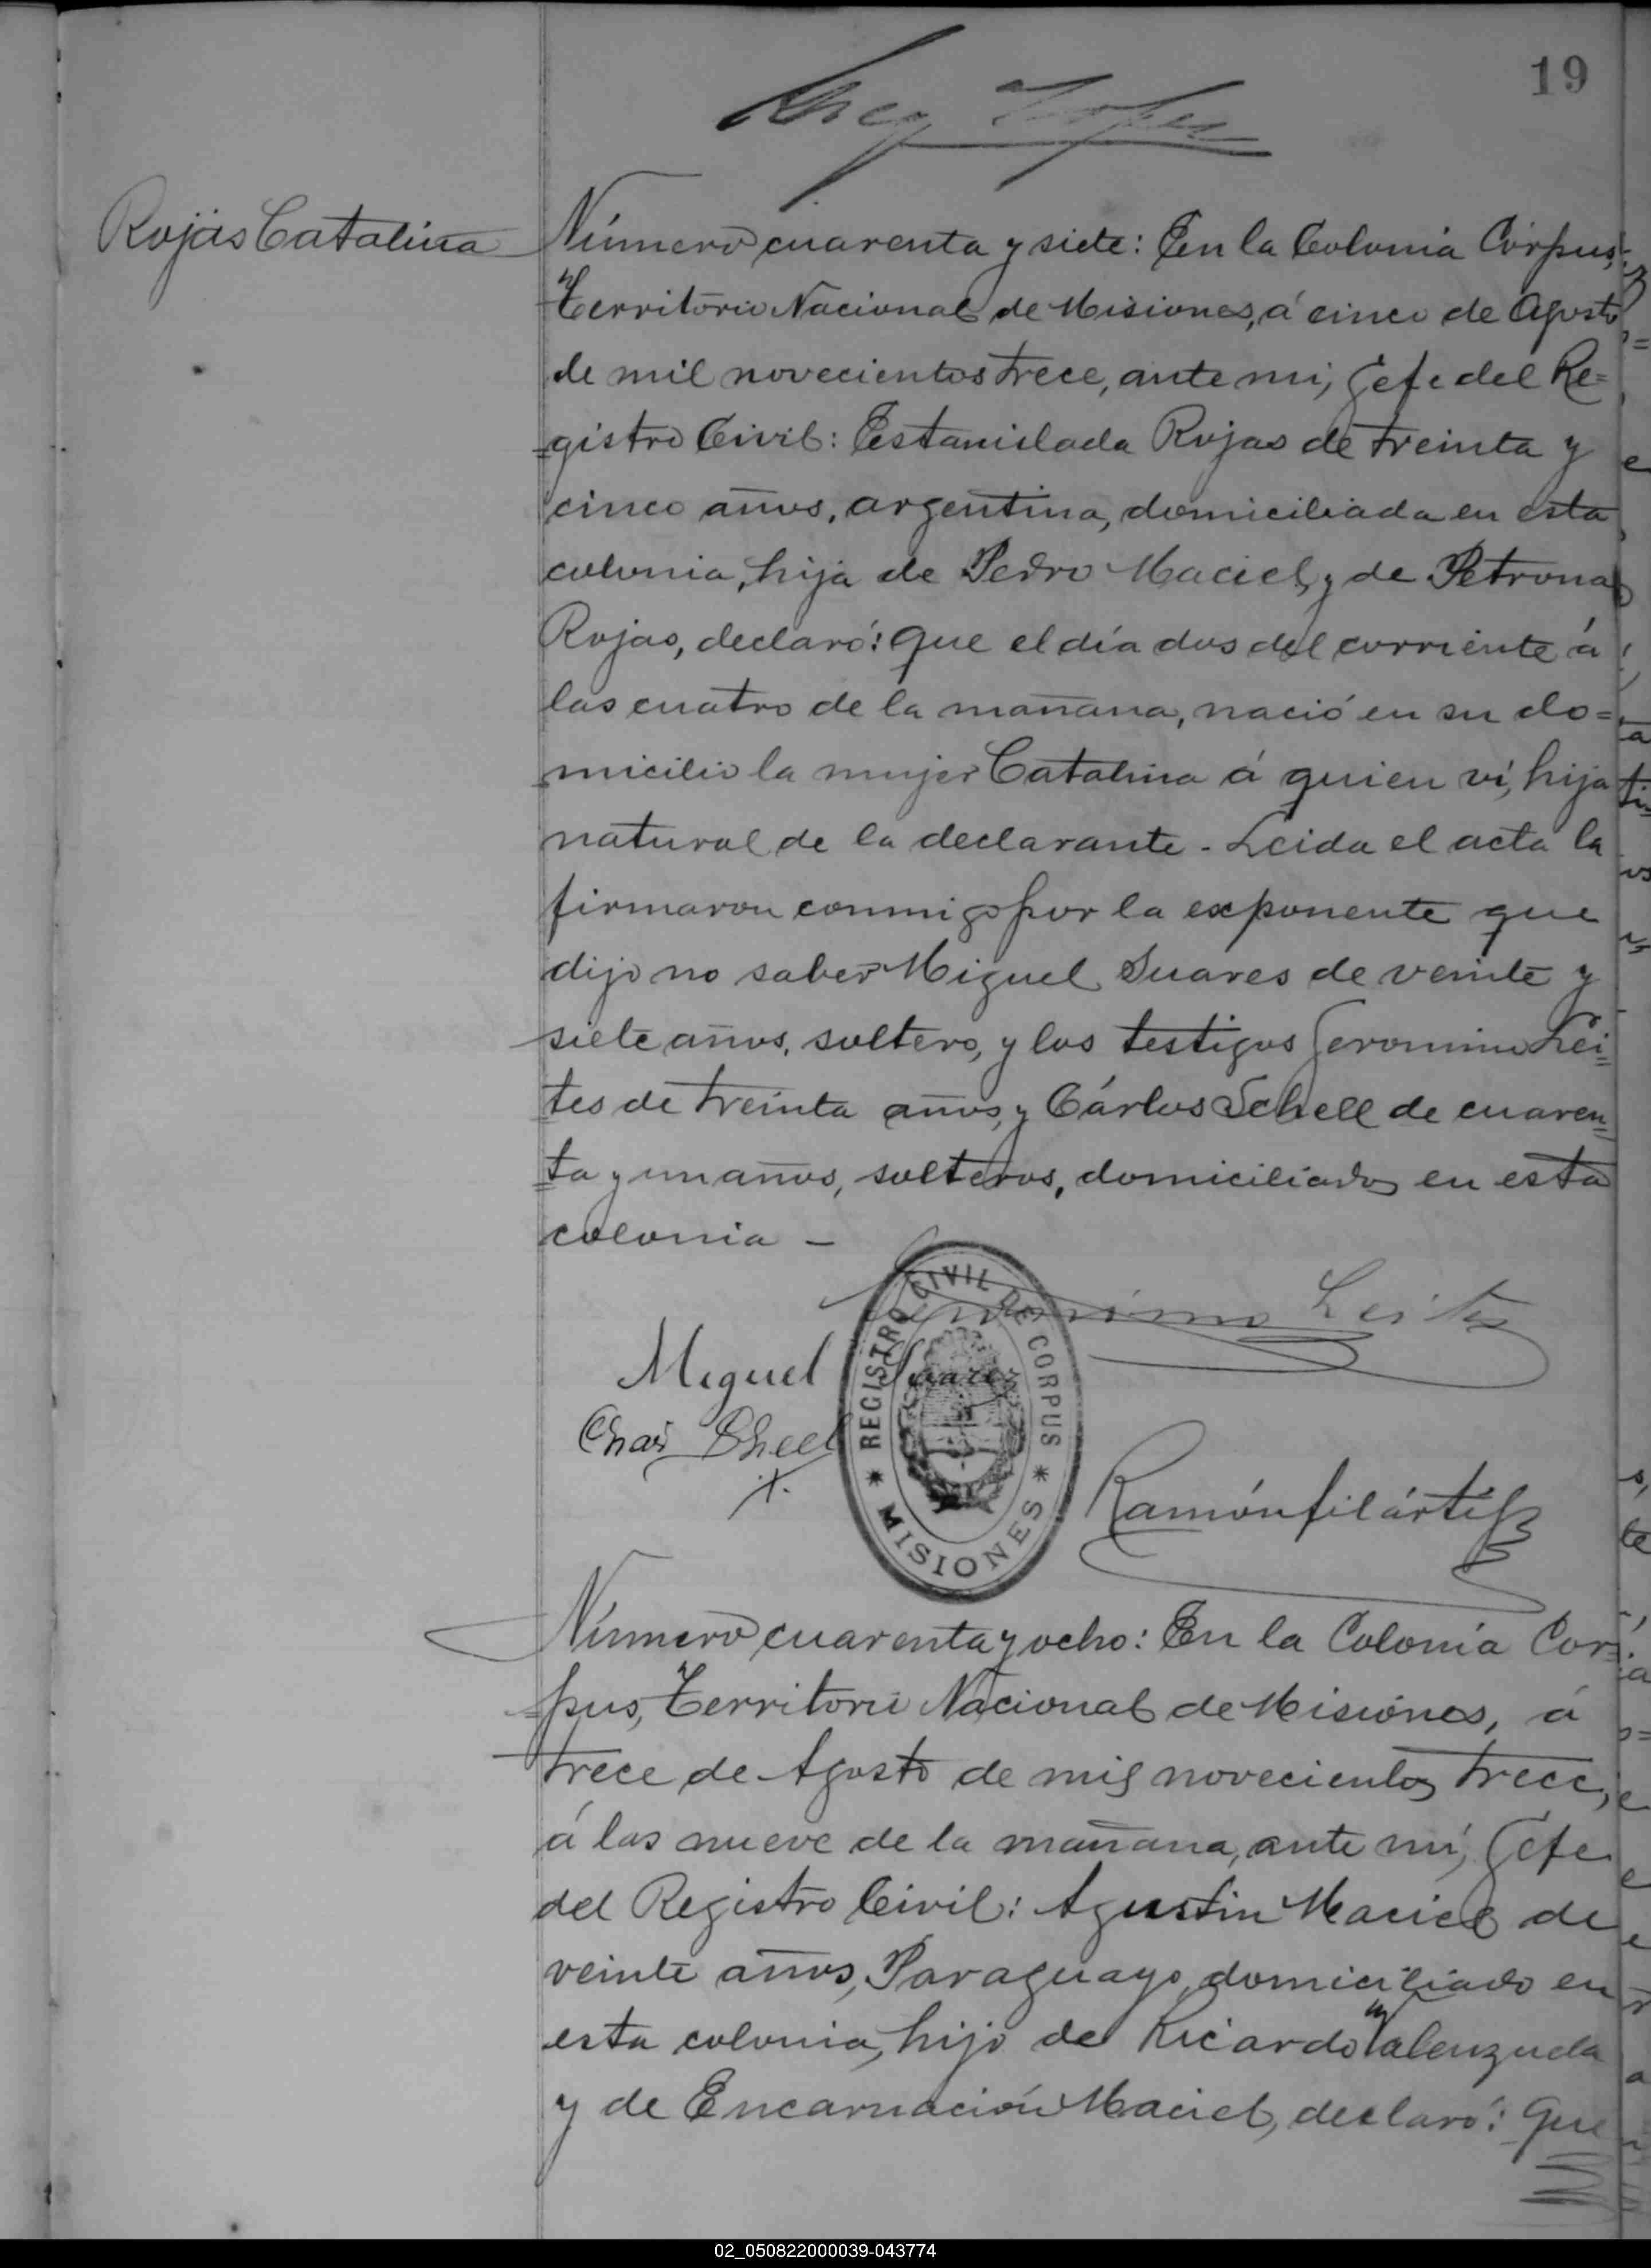 19
Rojas Catalina
Número cuarenta y siete: En la Colonia Córpus,
Territorio Nacional de Misiones, á cinco de Agosto
de mil novecientos trece, ante mi, Gefe del Re=
=gistro Civil: Estanislada Rojas de treinta y
cinco años, argentina, domiciliada en esta
colonia, hija de Pedro Maciel y de Petrona
Rojas, declaró: Que el día dos del corriente á
las cuatro de la mañana, nació en su do=
micilio la mujer Catalina á quien ví, hija
natural de la declarante. Leida el acta la
firmaron conmigo por la exponente que
dijo no saber Miguel Suares de veinte y
siete años, soltero, y los testigos Geronimo Lei=
tes de treinta años, y Cárlos Schell de cuaren=
=ta y un años, solteros, domiciliados en esta
colonia –
Geronimo Leites
Miguel Suarez
REGISTRO CIVIL DE CORPUS
* MISIONES *
Ramón
Número cuarenta y ocho: En la Colonia Cor=
=pus, Territorio Nacional de Misiones, á
trece de Agosto de mil novecientos trece,
á las nueve de la mañana, ante mí, Gefe
del Registro Civil: Agustin Maciel de
veinte años, Paraguayo, domiciliado en
esta colonia, hijo de Ricardo Valenzuela
y de Encarnación Maciel, declaró: Que
02_050822000039-043774